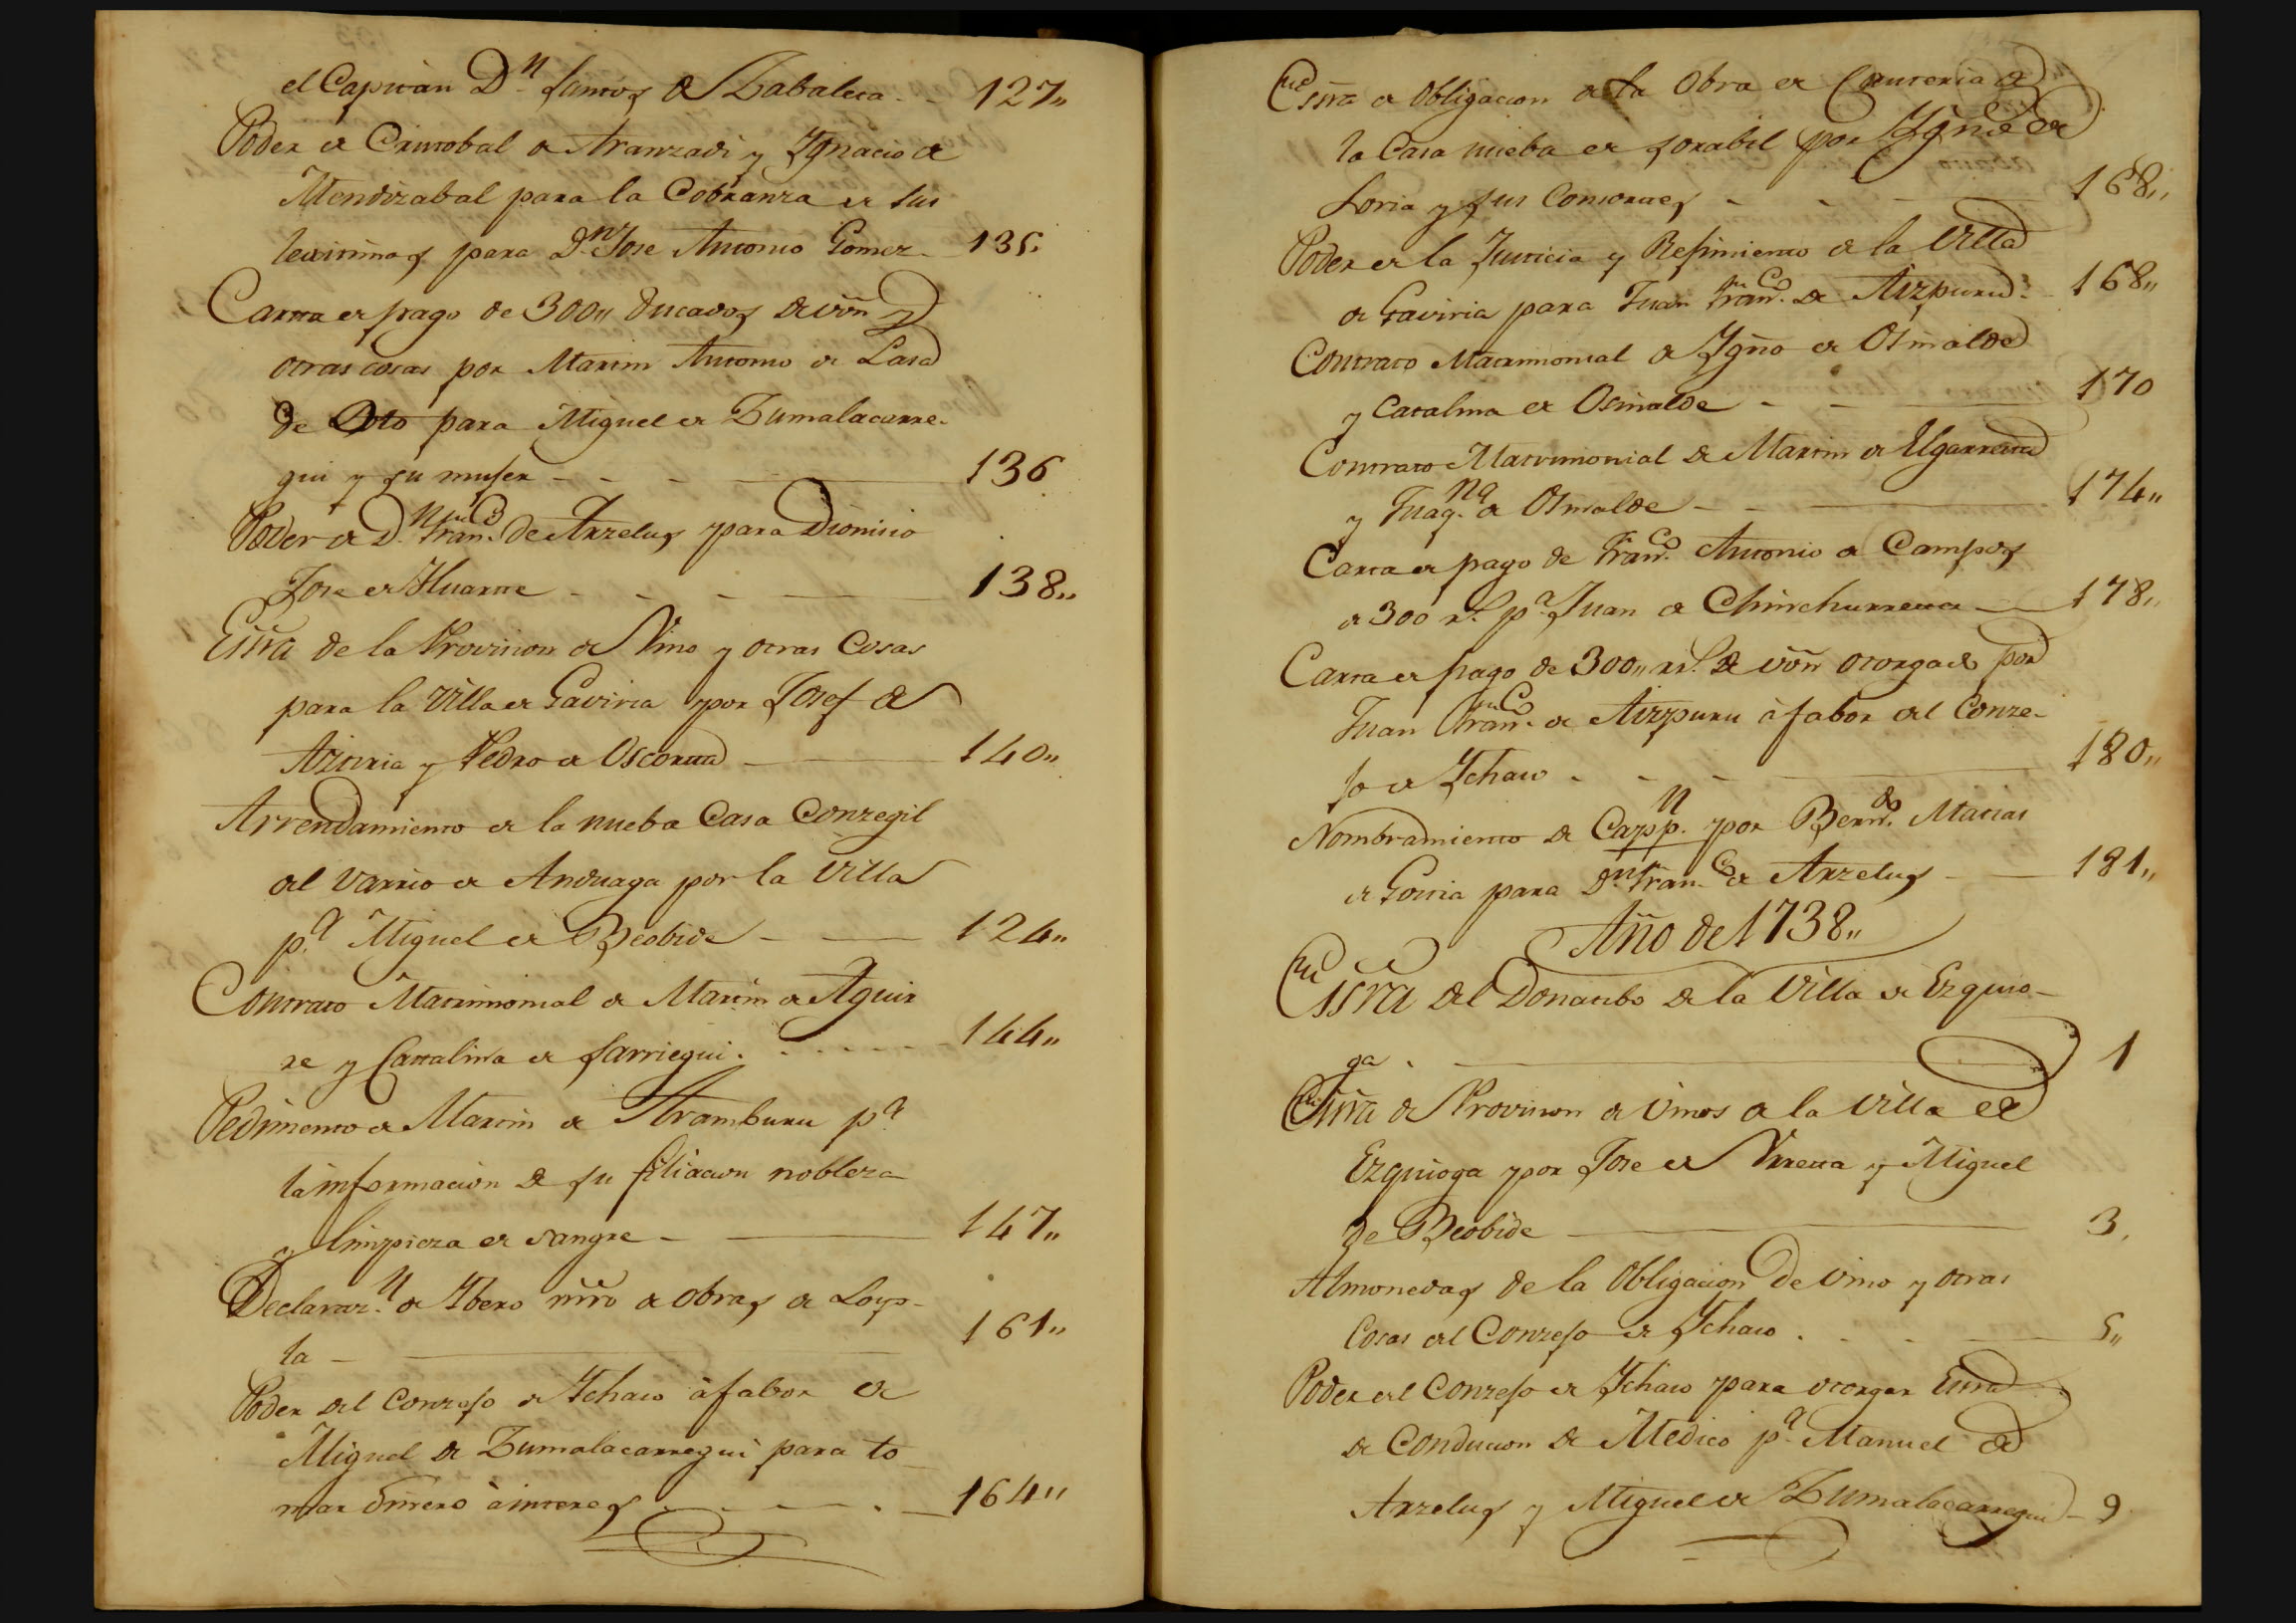 el Capitan Dn Santos de Zabaleta - - 127,,
Poder de Cristobal de Aranzadi y Ygnacio de
Mendizabal para la Cobranza de sus
lexitimas para Dn Jose Antonio Gomez - 135,
Carta de pago de 300,, ducados de von y
otras cosas por Martin Antonio de Lasa
de Oto para Miguel de Zumalacarre-
gui y su muger - - - 136
Poder de Dn Franco de Arzelus para Dionisio
Jose de Huarte - - - 138,,
Essra de la Provision de Vino y otras Cosas
para la Villa de Gaviria por Josef de
Aztiria y Pedro de Oscorta - 140,,
Arrendamiento de la nueba Casa Conzegil
del varrio de Anduaga por la Villa
pa Miguel de Beobide - - 124,,
Contrato Matrimonial de Martin de Aguir
re y Cattalina de Sarriegui. - - - - 144,,
Pedimento de Martin de Aramburu pa
la informacion de su filiacion nobleza
y limpieza de sangre - - 147,,
Declarazn de Ybero mro de obras de Loyo-
la - 161,,
Poder del Conzejo de Ychaso à fabor de
Miguel de Zumalacarregui para to
mar dinero à interes - - - . - 164,,
Essra de Obligacion de la Obra de Canteria de
la Casa nueba de forabil por Ygno de
Loria y sus Consortes - - - 168,,
Poder de la Justicia y Rejimiento de la Villa
de Gaviria para Juan Franco de Aizpuru - 168,,
Contrato Matrimonial de Ygno de Osinalde
y Catalina de Osinalde - - 170
Contrato Matrimonial de Martin de Elgarresta
y Juaqna de Osinalde - - 174,,
Carta de pago de Franco Antonio de Campos
de 300 rs pa Juan de Chinchurreta - 178,,
Carta de pago de 300,, rs de von otorgada por
Juan Franco de Aizpuru à fabor del Conze-
jo de Ychaso - - - 180,,
Nombramiento de Capn por Berndo Matias
de Goiria para Dn Franco de Arzelus - 181,,
Año de 1738,,
Essra del Donatibo de la Villa de Ezquio-
ga - 1
Essra de Provision de Vinos de la Villa de
Ezquioga por Jose de Urreta y Miguel
de Beobide - 3,
Almonedas de la Obligacion de vino y otras
Cosas del Conzejo de Ychaso . - - 5,,
Poder del Conzejo de Ychaso para otorgar Essra
de Conducion de Medico pa Manuel de
Arzelus y Miguel de Zumalacarregui - 9